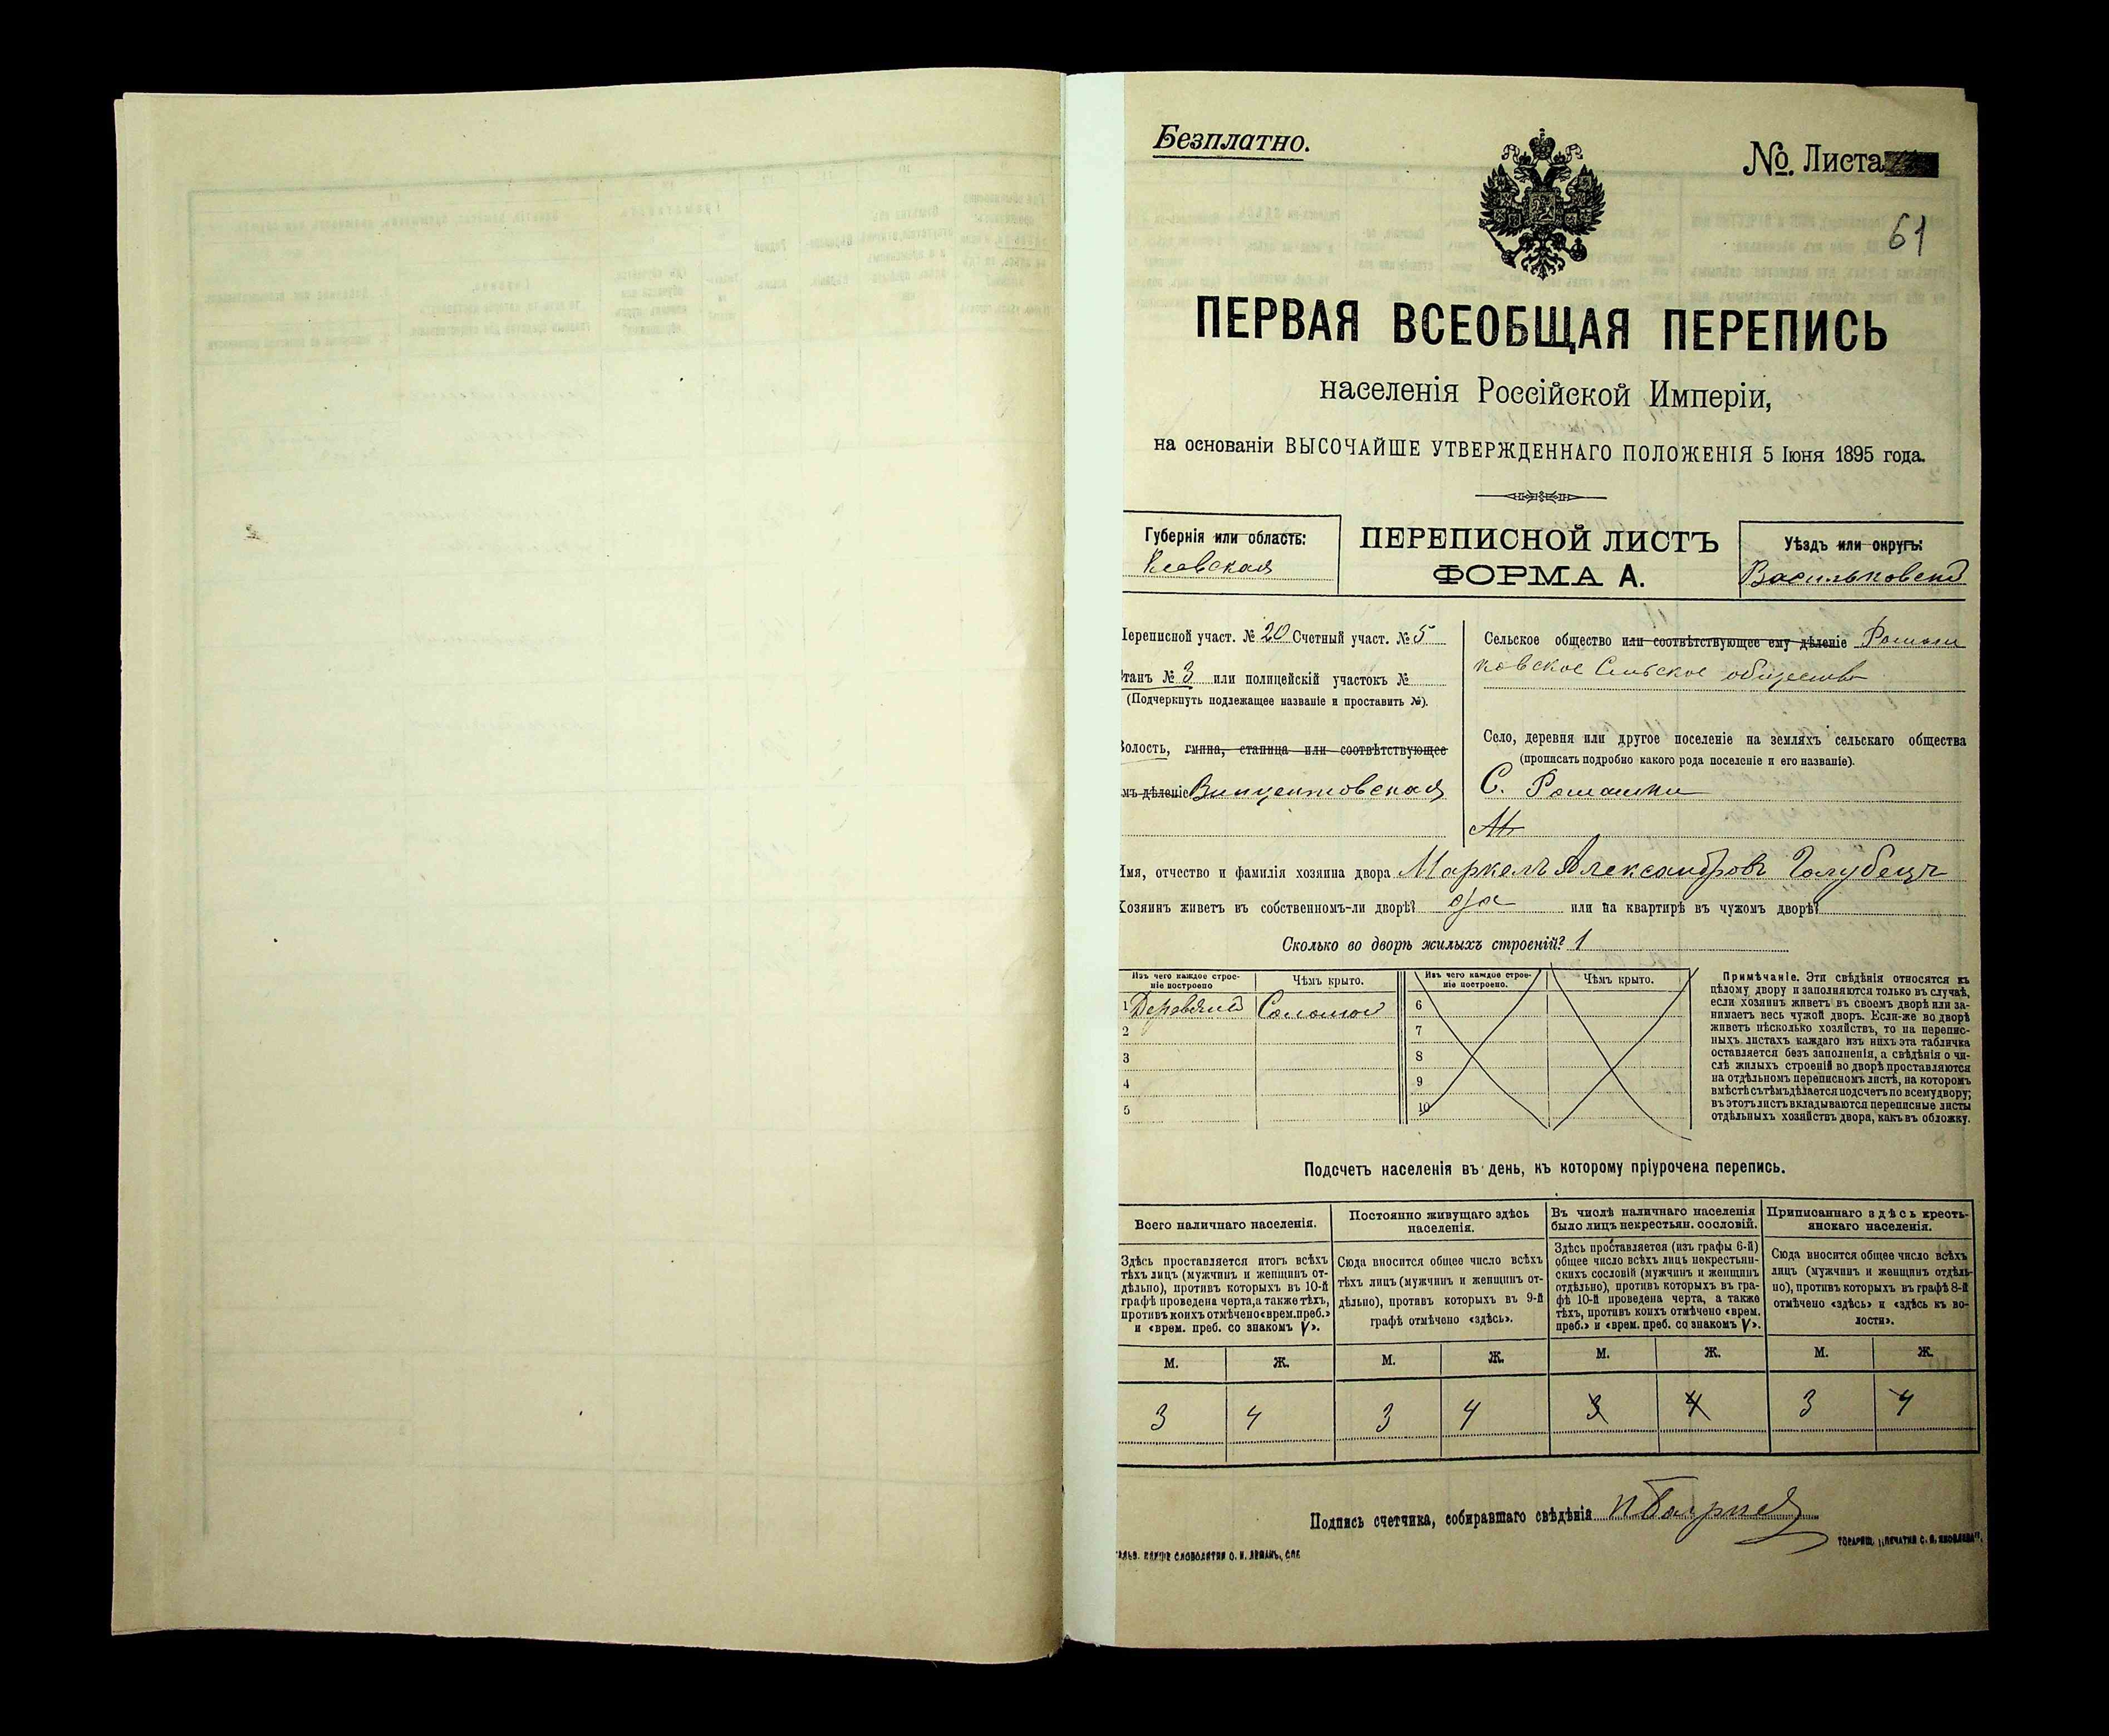 Безплатно.
№ Листа
61
ПЕРВАЯ ВСЕОБЩАЯ ПЕРЕПИСЬ
населенія Россійской Имперіи,
на основаніи ВЫСОЧАЙШЕ УТВЕРЖДЕННАГО ПОЛОЖЕНІЯ 5 Іюня 1895 года.
Губернія или область:
Кіевская
ПЕРЕПИСНОЙ ЛИСТЪ
ФОРМА А.
Уѣздъ или округъ:
Васильковскій
Переписной участ. № 20 Счетный участ. № 5
Станъ № 3 или полицейскій участокъ №
(Подчеркнуть подлежащее названіе и проставить №).
Волость, гмина, станица или соотвѣтствующее
имъ дѣленіе Винцентовская
Сельское общество или соотвѣтствующее ему дѣленіе Ромаш
ковское Сельское общество
Село, деревня или другое поселеніе на земляхъ сельскаго общества
(прописать подробно какого рода поселеніе и его названіе).
С. Ромашки
Имя, отчество и фамилія хозяина двора Маркелъ Александровъ Голубецъ
Хозяинъ живетъ въ собственномъ-ли дворѣ? да или на квартирѣ въ чужомъ дворѣ?
Сколько во дворѣ жилыхъ строеній? 1
Изъ чего каждое строе-
ніе построено
Чѣмъ крыто.
Изъ чего каждое строе-
ніе построено.
Чѣмъ крыто.
1 Деревяный Соломой
2
3
4
5
6
7
8
9
10
Примѣчаніе. Эти свѣдѣнія относятся къ
цѣлому двору и заполняются только въ случаѣ,
если хозяинъ живетъ въ своемъ дворѣ или за-
нимаетъ весь чужой дворъ. Если-же во дворѣ
живетъ нѣсколько хозяйствъ, то на перепис-
ныхъ листахъ каждаго изъ нихъ эта табличка
оставляется безъ заполненія, а свѣдѣнія о чи-
слѣ жилыхъ строеній во дворѣ проставляются
на отдѣльномъ переписномъ листѣ, на которомъ
вмѣстѣ съ тѣмъ дѣлается подсчетъ по всему двору;
въ этотъ листъ вкладываются переписные листы
отдѣльныхъ хозяйствъ двора, какъ въ обложку.
Подсчетъ населенія въ день, къ которому пріурочена перепись.
Всего наличнаго населенія.
Здѣсь проставляется итогъ всѣхъ
тѣхъ лицъ (мужчинъ и женщинъ от-
дѣльно), противъ которыхъ въ 10-й
графѣ проведена черта, а также тѣхъ,
противъ коихъ отмѣчено «врем. преб.»
и «врем. преб. со знакомъ V».
Постоянно живущаго здѣсь
населенія.
Сюда вносится общее число всѣхъ
тѣхъ лицъ (мужчинъ и женщинъ от-
дѣльно), противъ которыхъ въ 9-й
графѣ отмѣчено «здѣсь».
Въ числѣ наличнаго населенія
было лицъ некрестьян. сословій.
Здѣсь проставляется (изъ графы 6-й)
общее число всѣхъ лицъ некрестьян-
скихъ сословій (мужчинъ и женщинъ
отдѣльно), противъ которыхъ въ гра-
фѣ 10-й проведена черта, а также
тѣхъ, противъ коихъ отмѣчено «врем.
преб.» и «врем. преб. со знакомъ V».
Приписаннаго здѣсь кресть-
янскаго населенія.
Сюда вносится общее число всѣхъ
лицъ (мужчинъ и женщинъ отдѣль-
но), противъ которыхъ въ графѣ 8-й
отмѣчено «здѣсь» и «здѣсь къ во-
лости».
М. Ж. М. Ж. М. Ж. М. Ж.
3 4 3 4 3 4 3 4
Подпись счетчика, собиравшаго свѣдѣнія
ТОВАРИЩ. „ПЕЧАТНЯ С. П. ЯКОВЛЕВА".